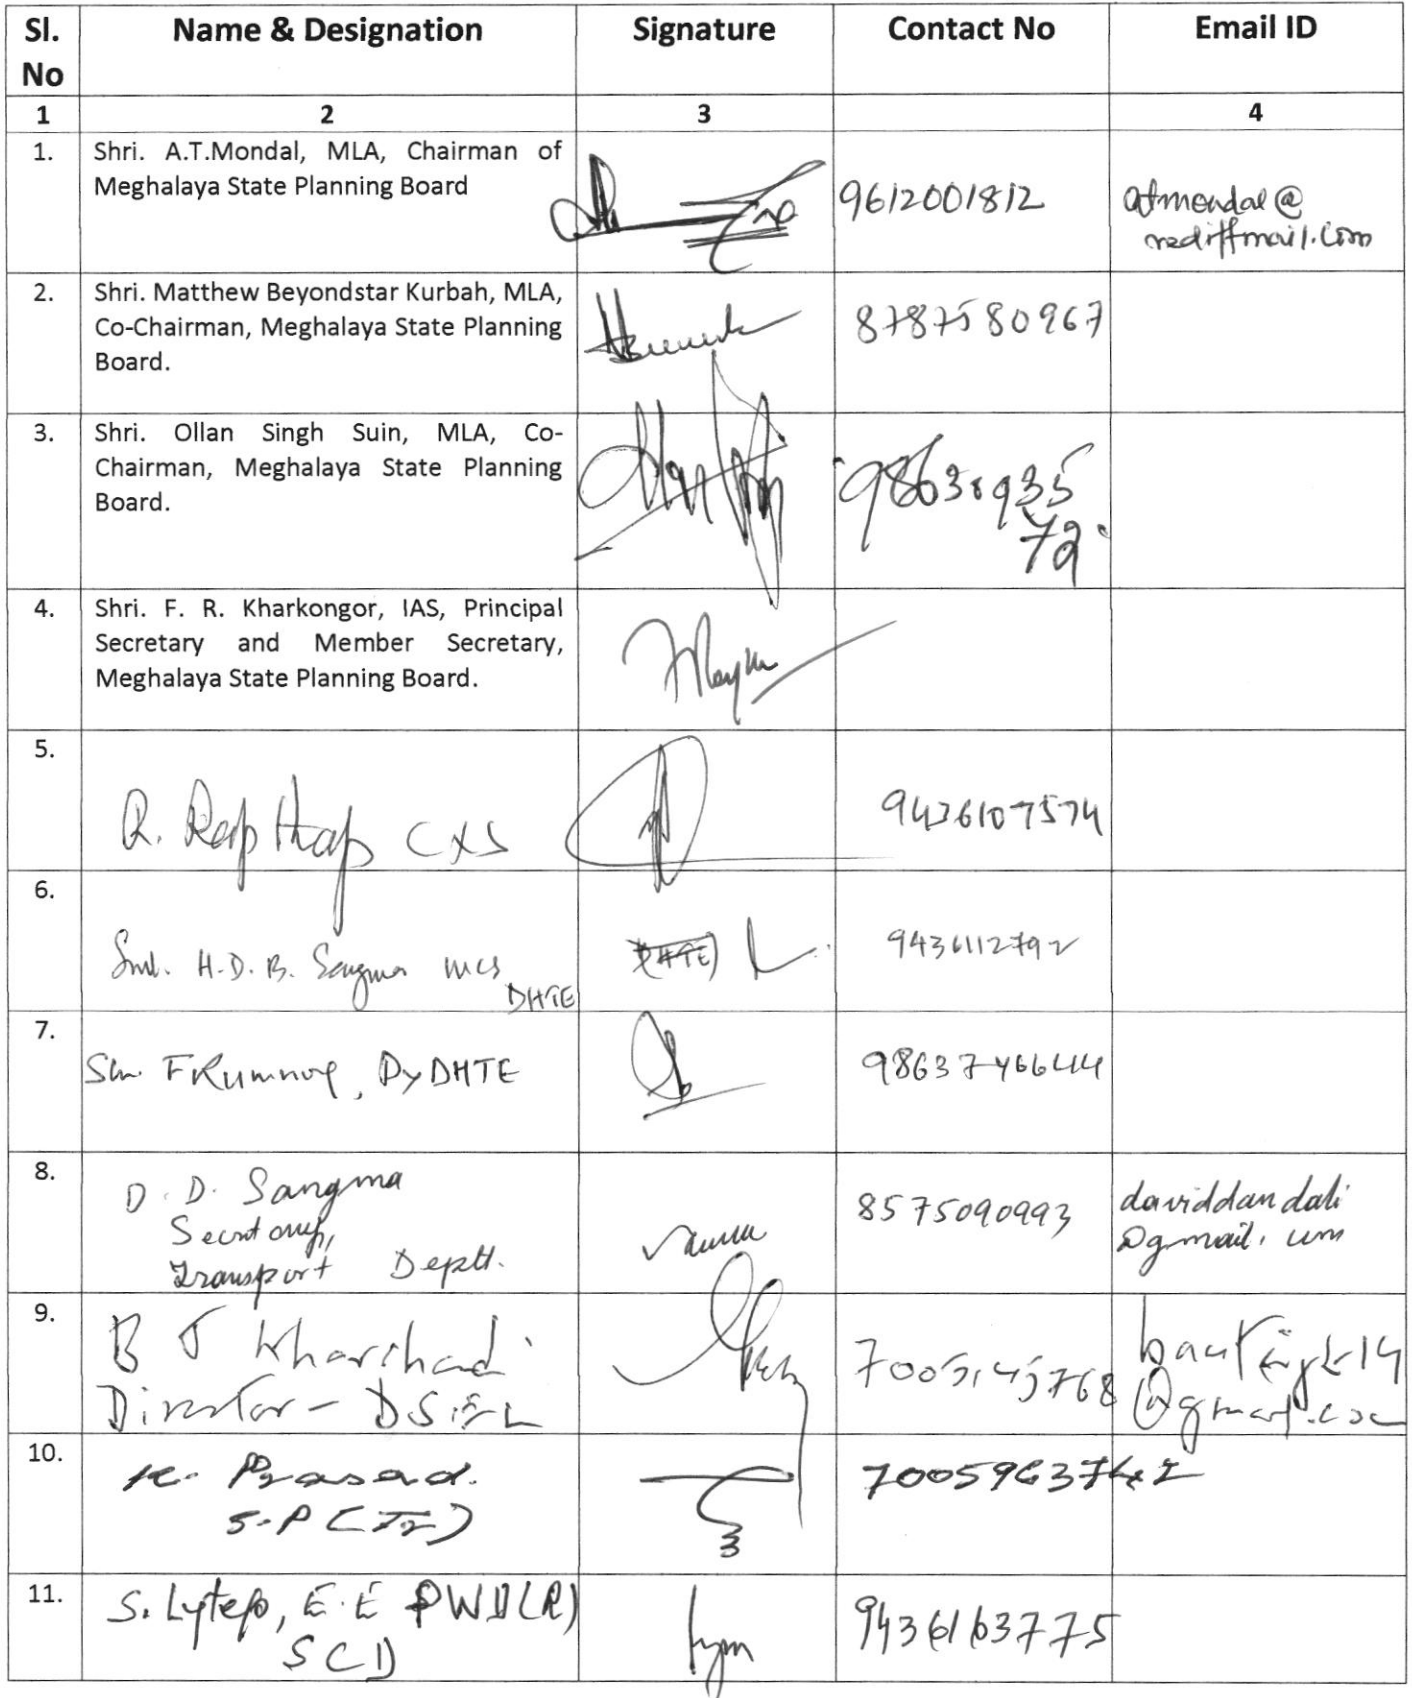 Sl. No | Name & Designation | Signature | Contact No | Email ID
1 | 2 | 3 | 4
1. Shri. A.T.Mondal, MLA, Chairman of
Meghalaya State Planning Board
9612001812
atmondal@
rediffmail.com
2. Shri. Matthew Beyondstar Kurbah, MLA,
Co-Chairman, Meghalaya State Planning
Board.
8787580967
3. Shri. Ollan Singh Suin, MLA, Co-
Chairman, Meghalaya State Planning
Board.
98630935
72
4. Shri. F. R. Kharkongor, IAS, Principal
Secretary and Member Secretary,
Meghalaya State Planning Board.
5. R. Rapthap
9436107574
6. Smt. H.D.B. Sangma MCS
DHTE
(DHTE)
9436112792
7. DyDHTE
9863746644
8. D. D. Sangma
Secretary,
Transport Deptt.
8575090993
daviddandali
@gmail.com
9. B J Kharshandi
Director - DSEL
7005145768
@gmail.com
10. K. Prasad.
S.P (Tr)
11. S. Lytep, E.E PWD(R)
SCD
9436163775